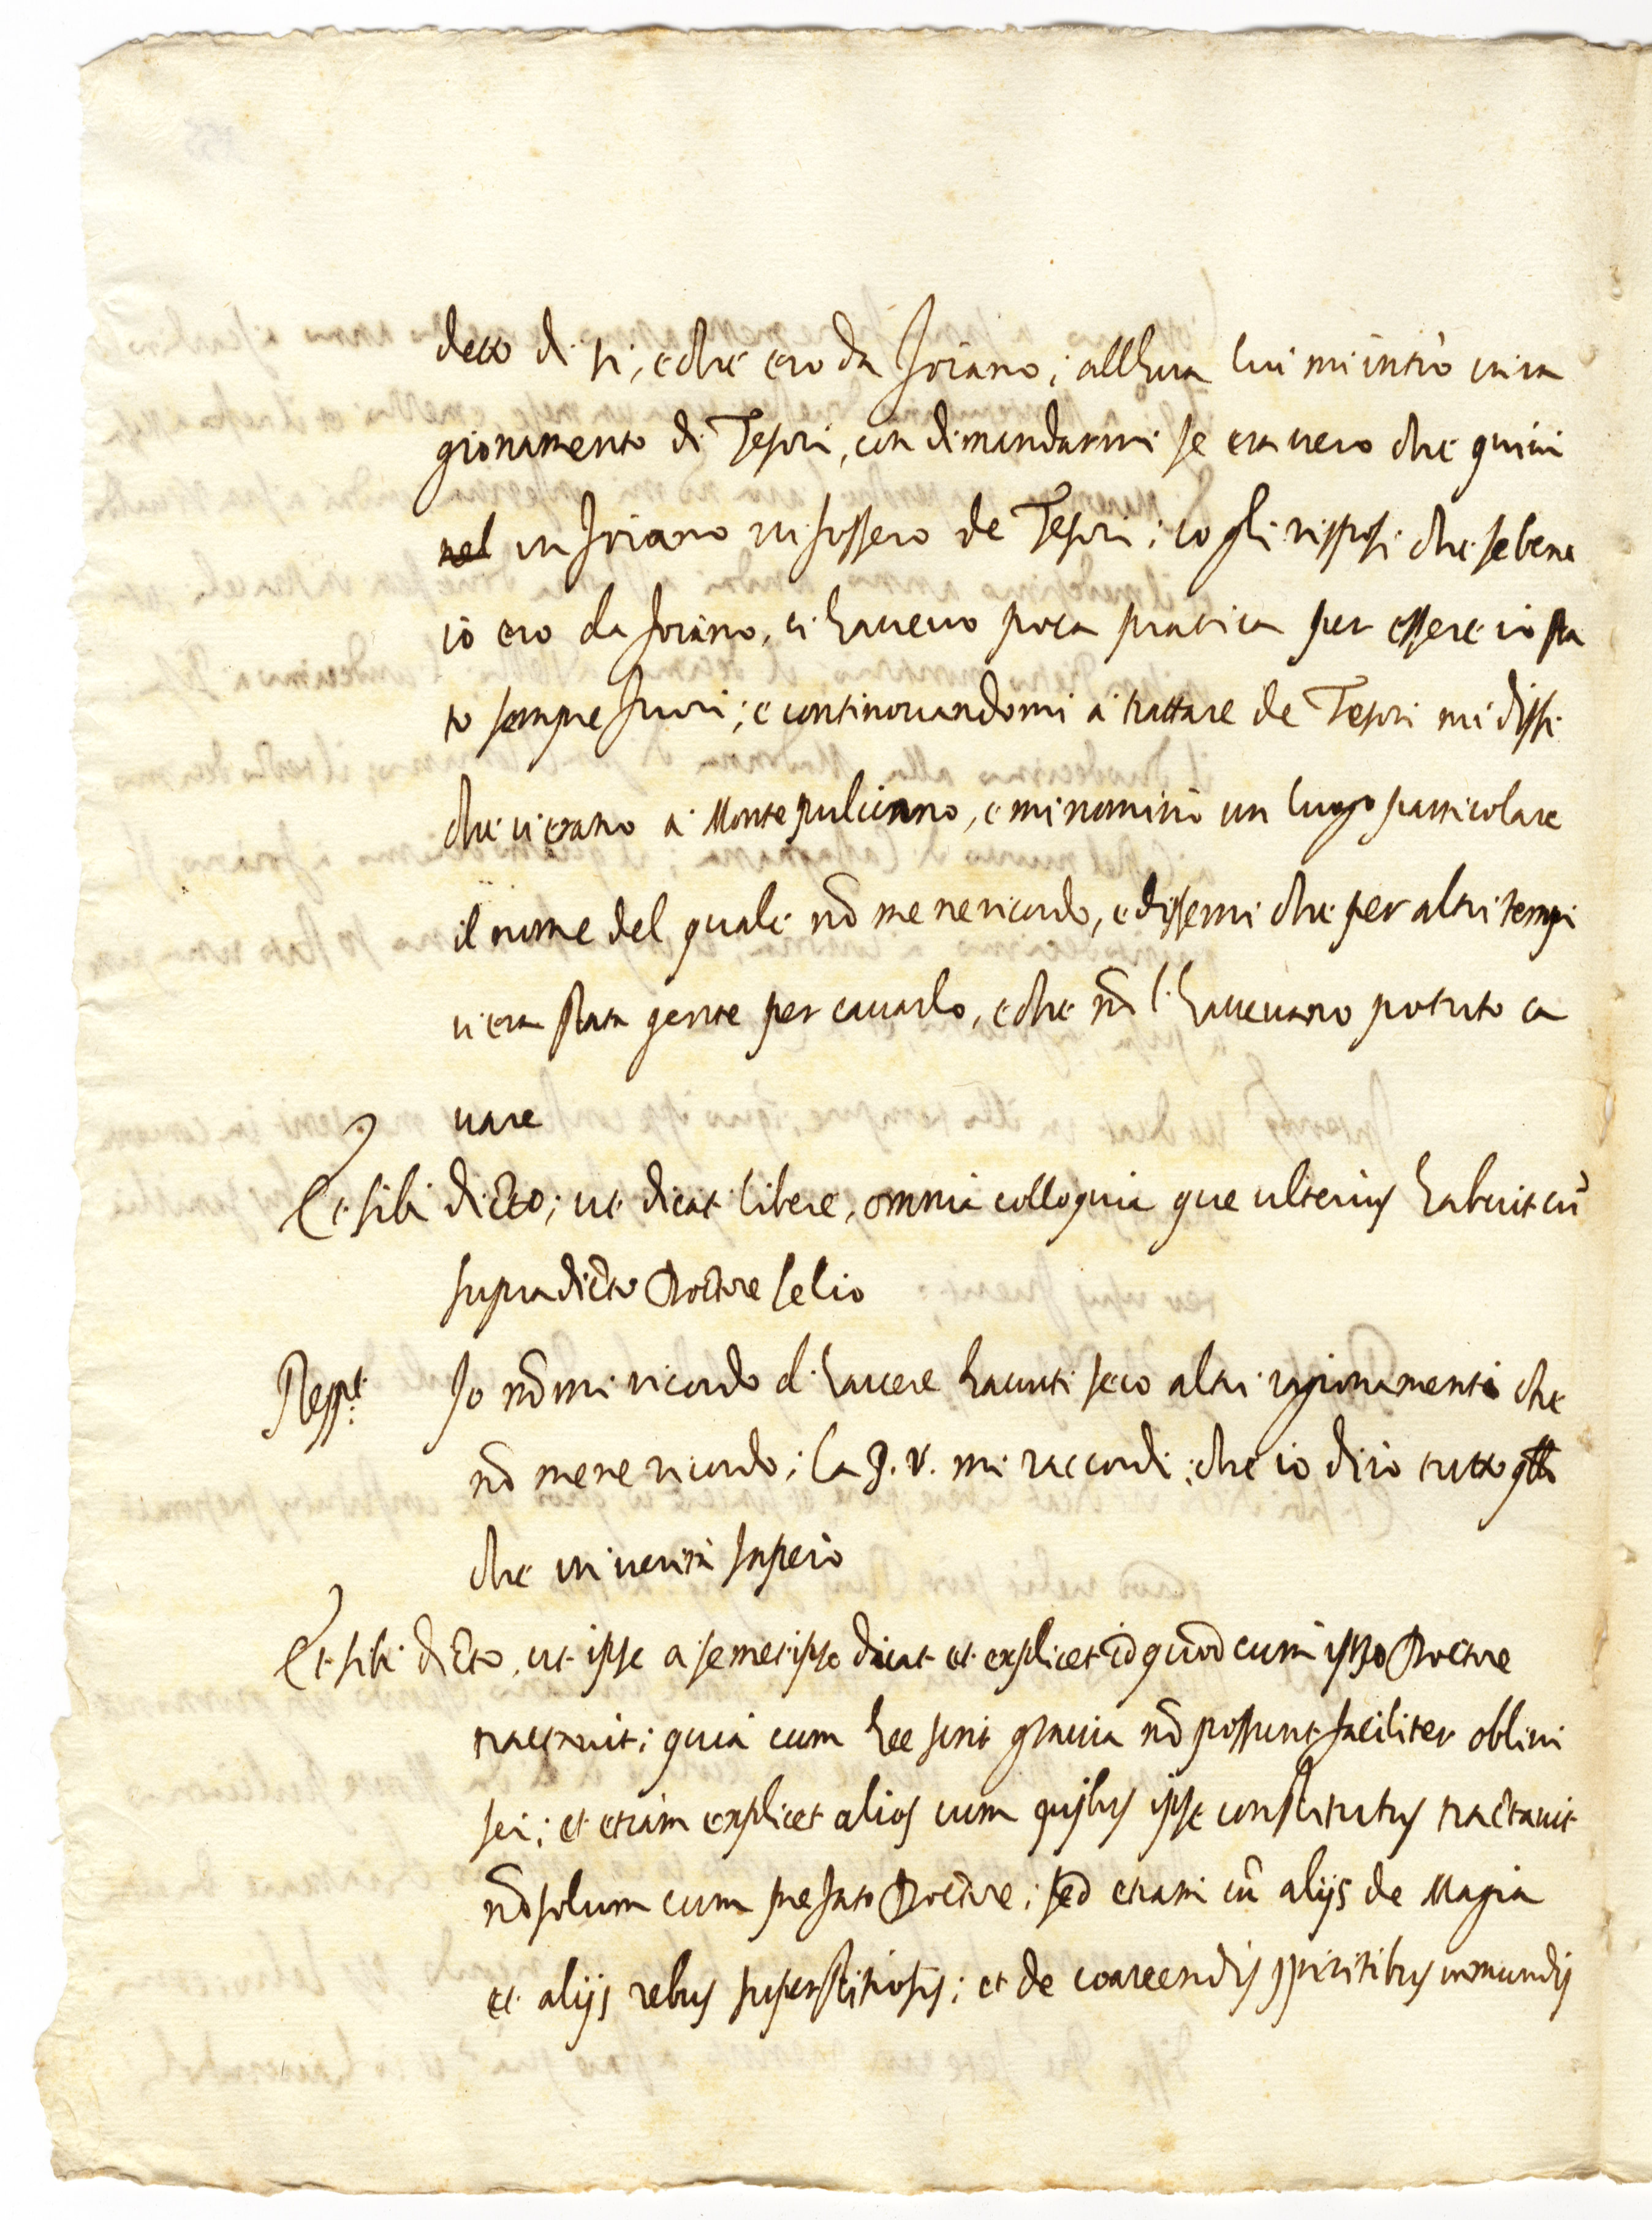 detto di si, e che ero da Soriano; all'hora lui mi intrò in ra
gionamento di Tesori, con dimandarmi se era vero che quivi
nel in Soriano vi fossero de Tesori; io gli risposi che se bene
io ero da Soriano, ci havevo poca pratica per essere io sta
to sempre fuori; e continovandomi à trattare de Tesori mi disse
che vi erano à Montepulciano, e mi nominò un luogo particolare
il nome del quale nō me ne ricordo, e dissemi che per altri tempi
vi era stata gente per cavarlo, e che nō l'havevano potuto ca
vare
Et sibi dicto; ut dicat libere, omnia colloquia que ulterius habuit cū
supradicto Doctore Lelio
Rispt. Io nō mi ricordo d'havere havuti seco altri ragionamenti che
nō me ne ricordo; la S. V. mi raccordi, che io dirò tutto qllo
che in verità saperò
Et sibi dicto, ut ipse a semetipso dicat et explicet id quod cum ipso Doctore
tractavit; quia cum hec sint gravia nō possunt faciliter oblivi
sci; et etiam explicet alios cum quibus ipse constitutus tractavit
nō solum cum prefato Doctore; sed etiam cū aliis de Magia
et aliis rebus superstitiosis; et de coarcendis spiritibus immundis